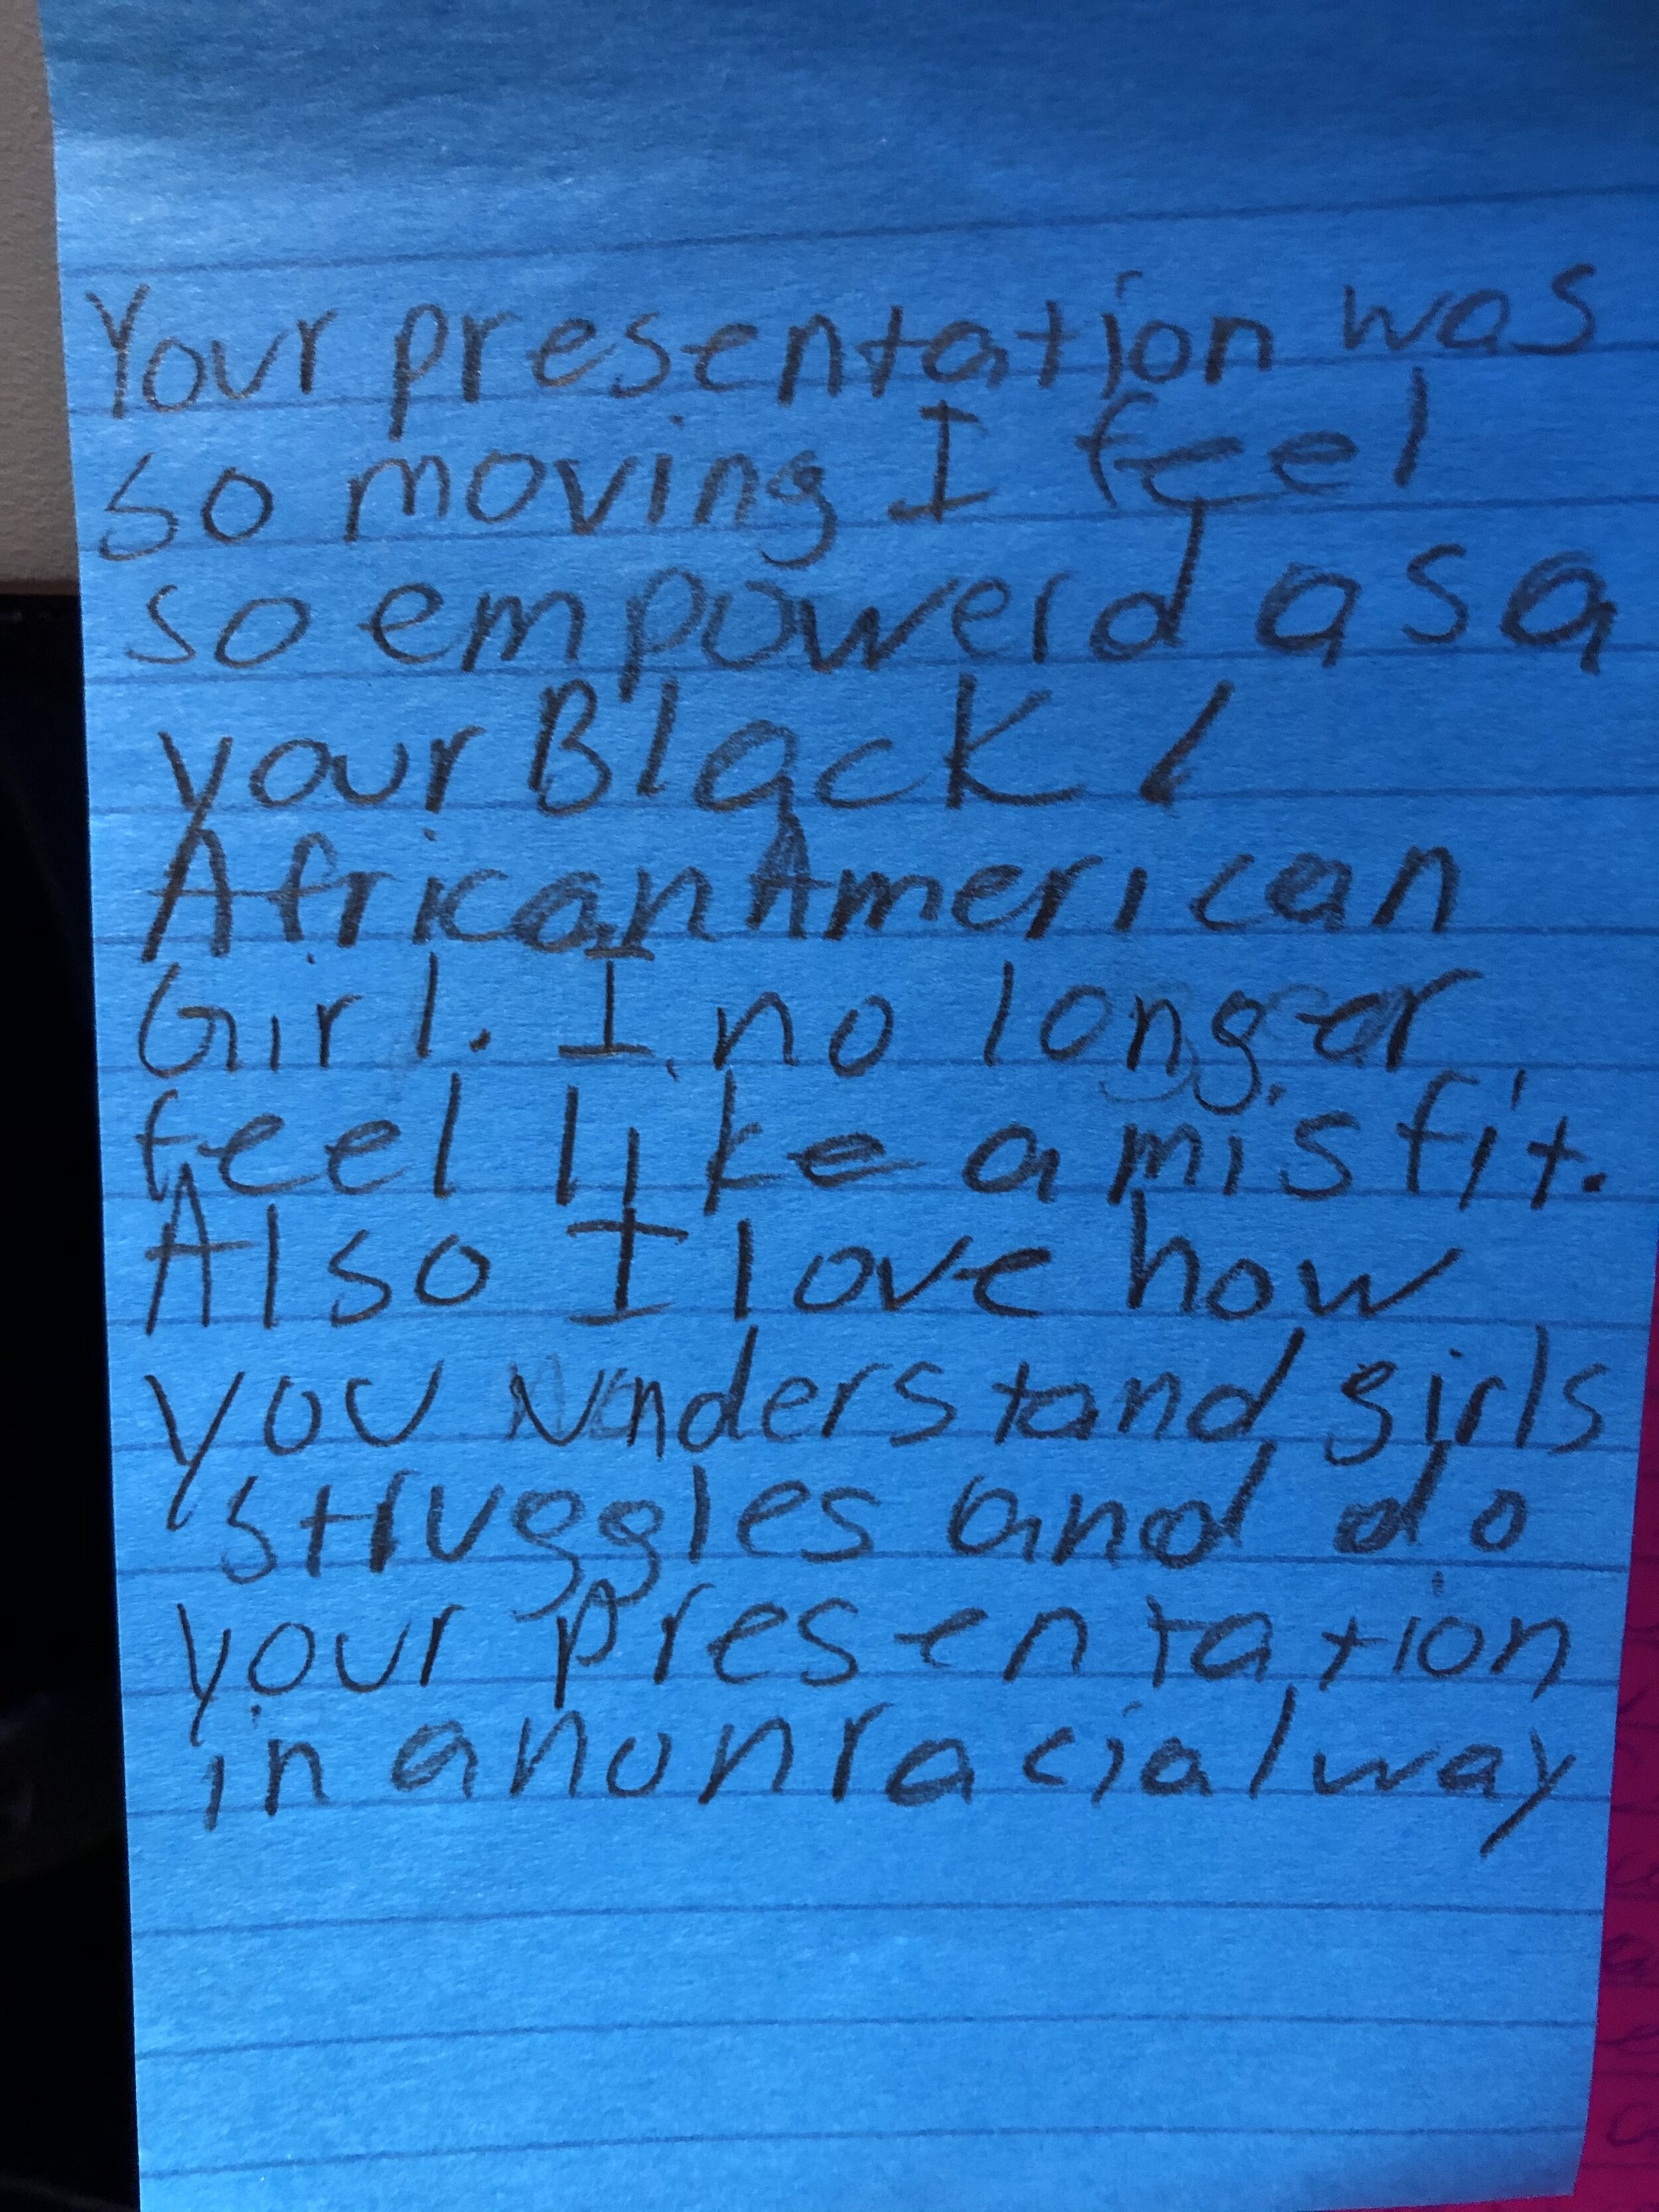 Your presentation was
so moving I feel
so empowerd as a
your Black /
African American
Girl. I no longer
feel like a misfit.
Also I love how
you understand girls
struggles and do
your presentation
in a nonracial way